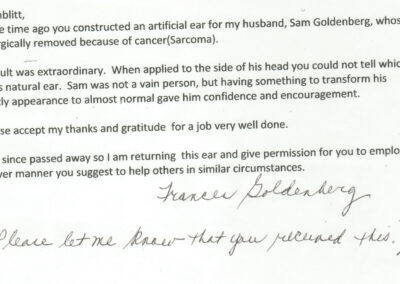 blitt,
e time ago you constructed an artificial ear for my husband, Sam Goldenberg, whos
rgically removed because of cancer(Sarcoma).
ult was extraordinary. When applied to the side of his head you could not tell which
s natural ear. Sam was not a vain person, but having something to transform his
ly appearance to almost normal gave him confidence and encouragement.
se accept my thanks and gratitude for a job very well done.
since passed away so I am returning this ear and give permission for you to emplo
ver manner you suggest to help others in similar circumstances.
Frances Goldenberg
Please let me know that you received this.